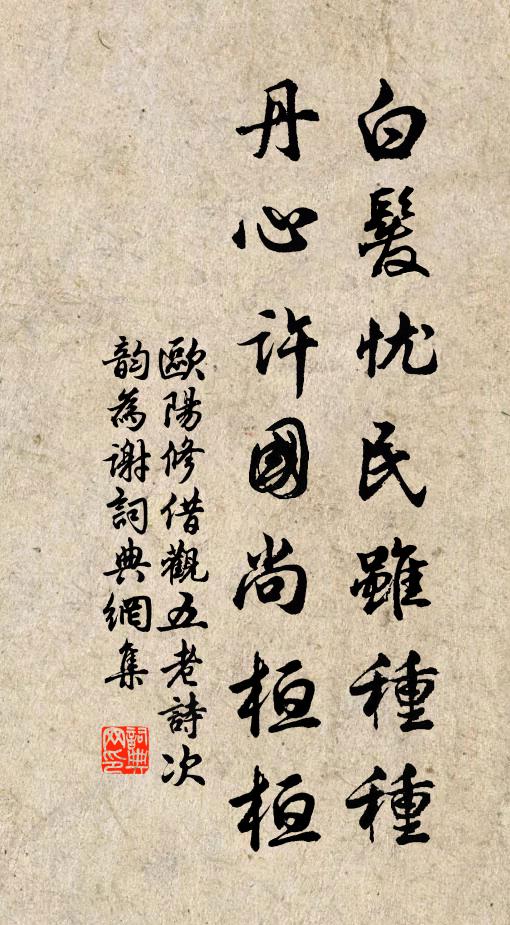 白髮忧民雖種種
丹心許國尚桓桓
歐陽修借觀五老詩次
韵為谢詞典網集
詞典
网印